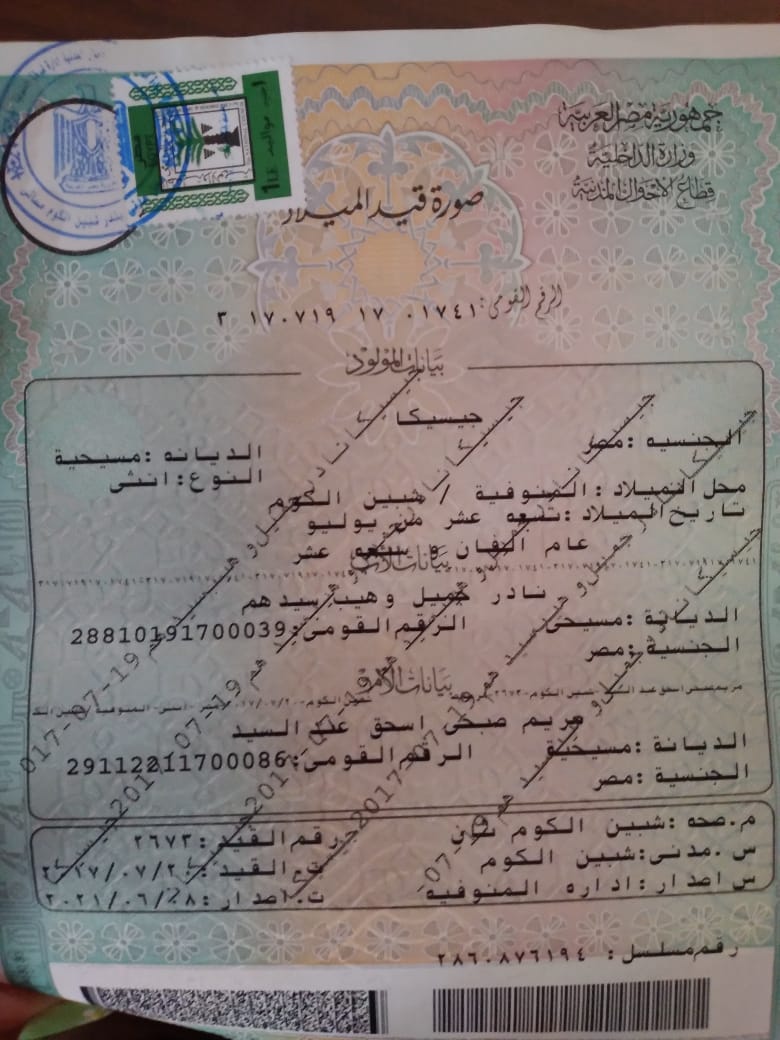 جمهورية مصر العربية
وزارة الداخلية
قطاع الأحوال المدنية
صورة قيد الميلاد
الرقم القومى: ٣ ١٧٠٧١٩ ١٧ ٠١٧٤١
بيانات المولود
جيسيكا
الجنسيه :مصر
الديانه :مسيحية
النوع: انثى
محل الميلاد : المنوفية / شبين الكوم
تاريخ الميلاد :تسعه عشر من يوليو
عام الفان و سبعه عشر
بيانات الأب
نادر جميل وهيب سيدهم
الديانة :مسيحى
الرقم القومى:28810191700039
الجنسية :مصر
بيانات الأم
مريم صبحى اسحق عبد السيد
الديانة :مسيحية
الرقم القومى:29112211700086
الجنسية :مصر
م.صحه :شبين الكوم ثان
رقم القيد :٢٦٧٣
س.مدنى:شبين الكوم
ت.القيد :
س اصدار: اداره المنوفيه
ت.اصدار :٢٠٢١/٠٦/٢٨
رقم مسلسل : ٢٨٦٠٨٧٦١٩٤